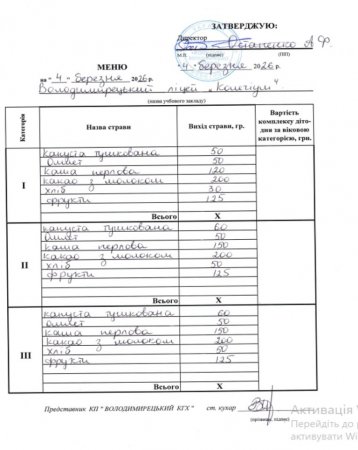 ЗАТВЕРДЖУЮ:
Директор
Остапенко А Ф.
М.П. (підпис) (ПІП)
МЕНЮ
"4" березня 2026 р.
на "4" березня 2026 р.
Володимирецький ліцей "Колегіум"
(назва учбового закладу)
Категорія
Назва страви
Вихід страви, гр.
Вартість комплексу діто-дня за віковою категорією, грн.
I
капуста тушкована 50
Омлет 50
каша перлова 120
какао з молоком 200
хліб 30
фрукти 125
Всього X
II
капуста тушкована 60
Омлет 50
каша перлова 150
какао з молоком 200
хліб 50
фрукти 125
Всього X
III
капуста тушкована 60
Омлет 50
каша перлова 150
какао з молоком 200
хліб 50
фрукти 125
Всього X
Представник КП " ВОЛОДИМИРЕЦЬКИЙ КГХ " ст. кухар
(прізвище, підпис)
Активація
Перейдіть до
активувати Wi